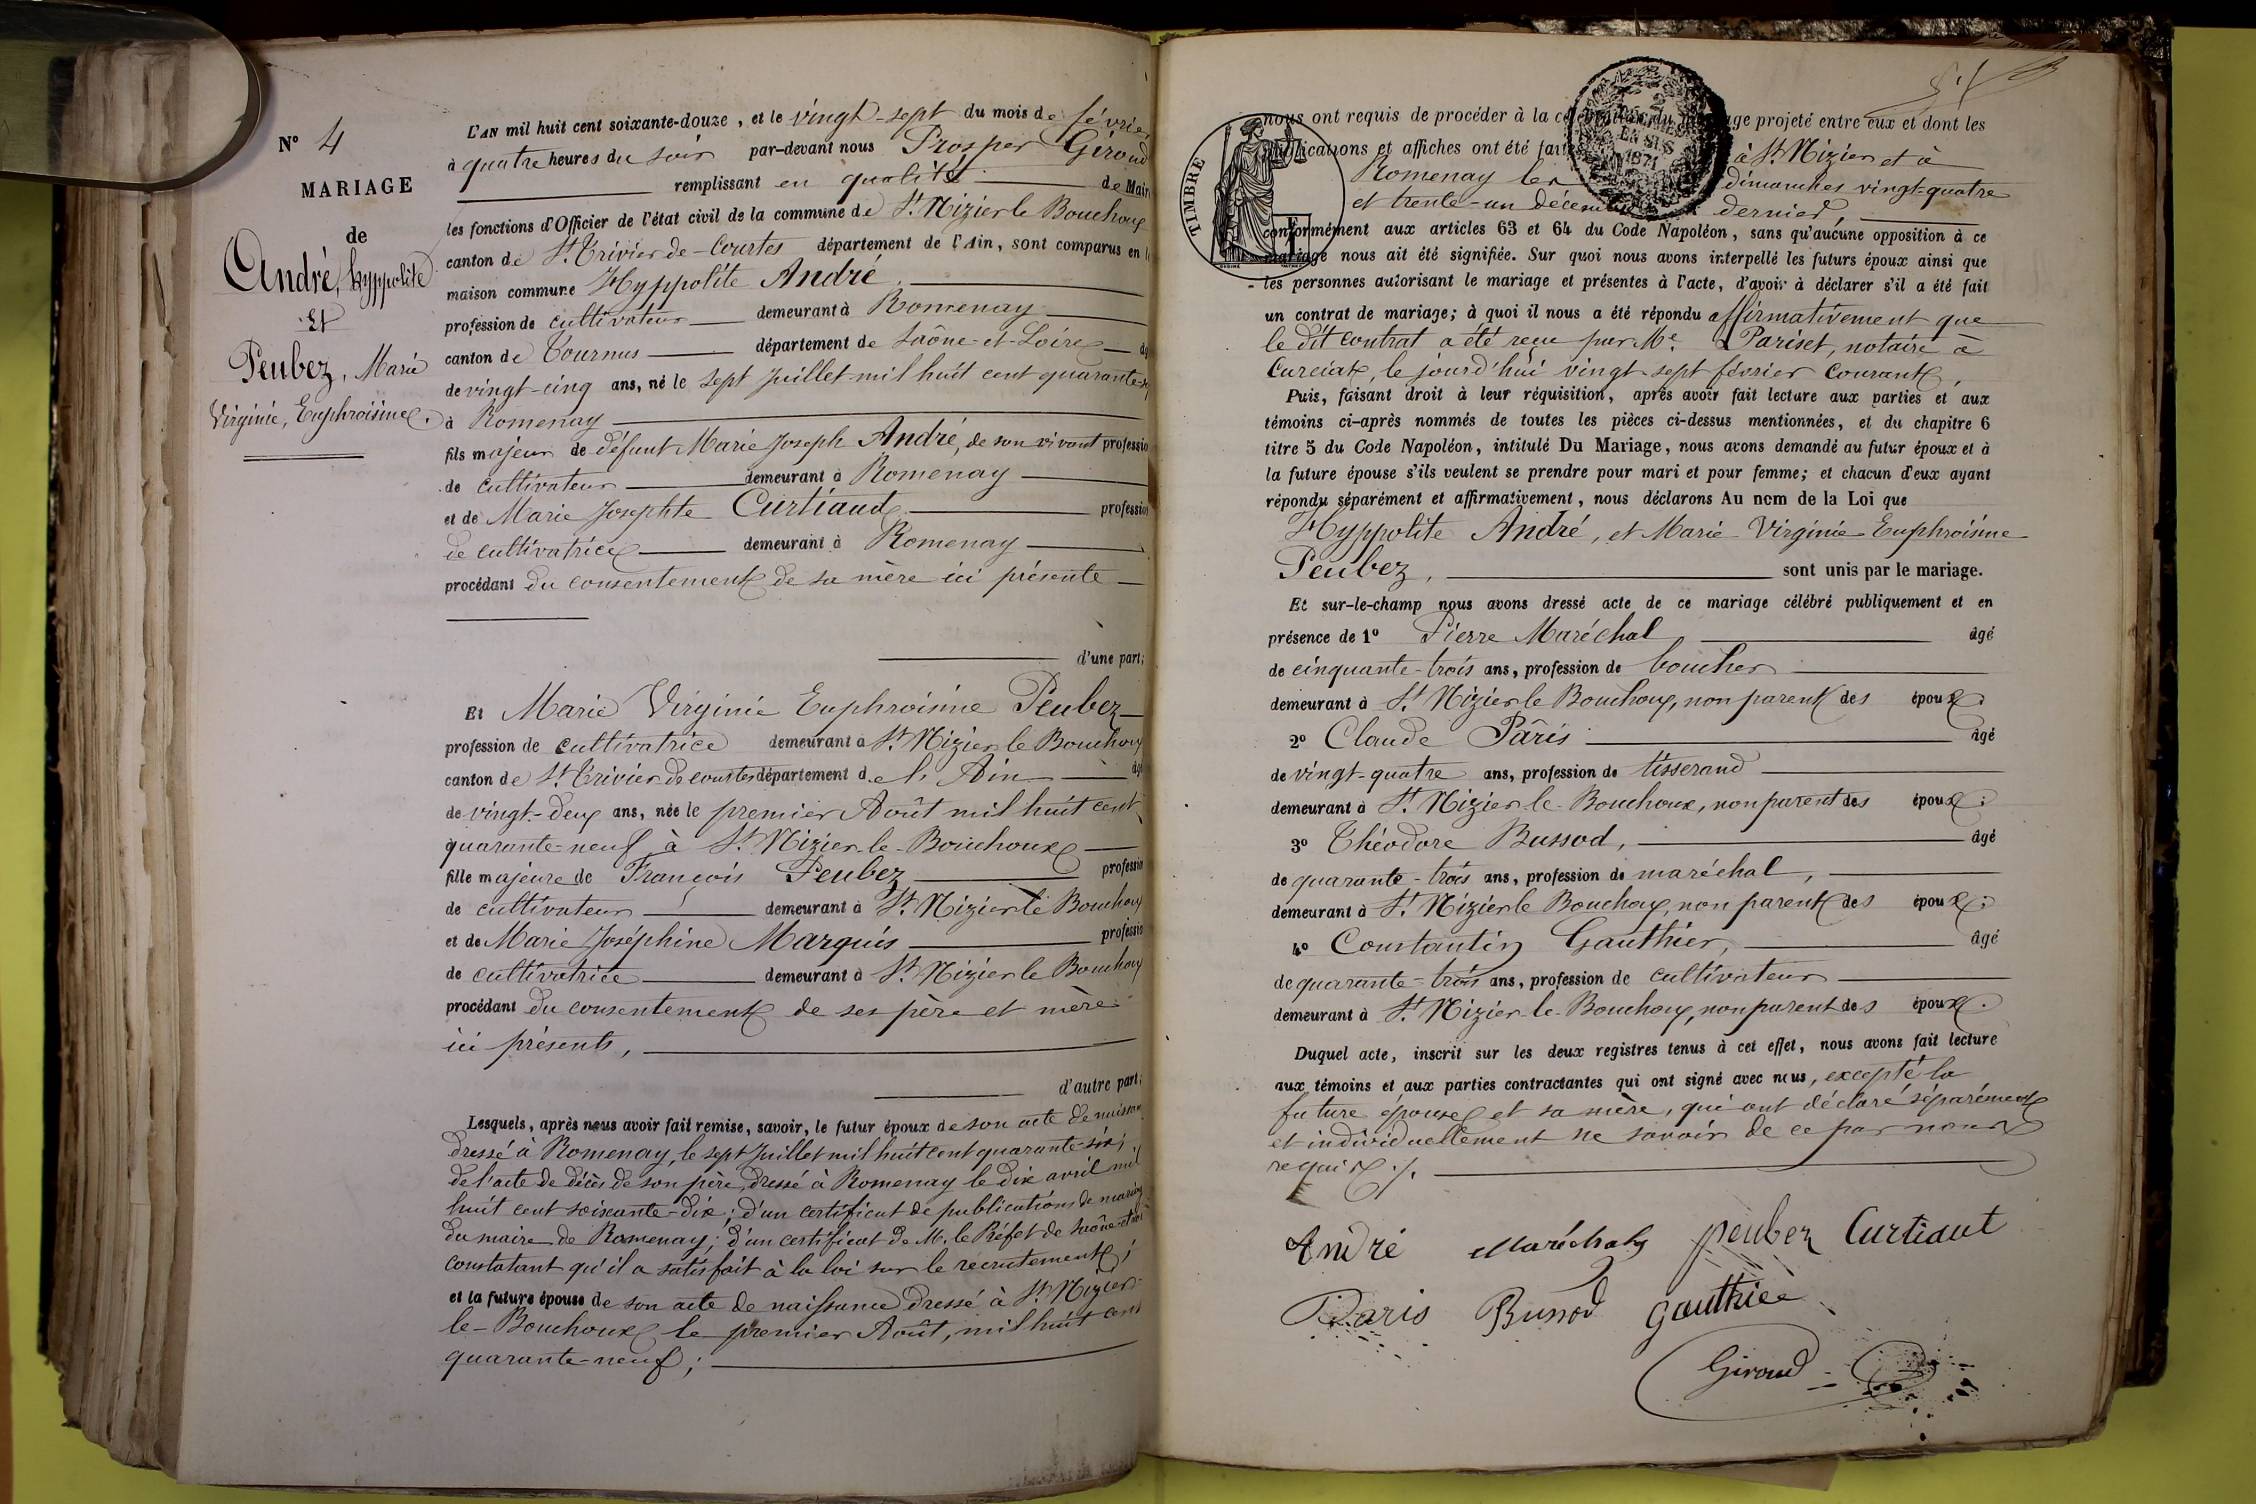 N° 4
MARIAGE
de
André, hyppolite
Et
Peubez, Marie
Virginie, Euphroisine.
L'AN mil huit cent soixante-douze, et le vingt-sept du mois de février
à quatre heures du soir par-devant nous Prosper Giroud
remplissant en qualité de Maire
les fonctions d'Officier de l'état civil de la commune de St Nizier le Bouchoux
canton de St Trivier-de-Courtes département de l'Ain, sont comparus en la
maison commune Hyppolite André
profession de cultivateur demeurant à Romenay
canton de Tournus département de Saône-et-Loire
de vingt-cinq ans, né le sept Juillet mil huit cent quarante-
à Romenay
fils majeur de défunt Marie Joseph André, de son vivant professio
de cultivateur demeurant à Romenay
et de Marie Josephte Curtiaud profession
de cultivatrice demeurant à Romenay
procédant du consentement de sa mère ici présente
d'une part;
Et Marie Virginie Euphroisine Peubez
profession de cultivatrice demeurant à St Nizier le Bouchoux
canton de St Trivier de courtes département de l'Ain
de vingt-deux ans, née le premier Août mil huit cent
quarante-neuf à St Nizier-le-Bouchoux
fille majeure de François Peubez profession
de cultivateur demeurant à St Nizier le Bouchoux
et de Marie Joséphine Marquis professio
de cultivatrice demeurant à St Nizier le Bouchoux
procédant du consentement de ses père et mère
ici présents,
d'autre part;
Lesquels, après nous avoir fait remise, savoir, le futur époux de son acte de naissan
dressé à Romenay, le sept Juillet mil huit cent quarante-six;
de l'acte de décès de son père, dressé à Romenay le dix avril mil
huit cent soixante-dix; d'un certificat de publications de mariag
du maire de Romenay; d'un certificat de M. le Préfet de Saône-et-
constatant qu'il a satisfait à la loi sur le recrutement;
et la future épouse de son acte de naissance dressé à St Nizier-
le-Bouchoux le premier Août, mil huit cent
quarante-neuf;
nous ont requis de procéder à la célébration du mariage projeté entre eux et dont les
publications et affiches ont été faites à St Nizier et à
Romenay les dimanches vingt-quatre
et trente-un décembre dernier,
conformément aux articles 63 et 64 du Code Napoléon, sans qu'aucune opposition à ce
mariage nous ait été signifiée. Sur quoi nous avons interpellé les futurs époux ainsi que
les personnes autorisant le mariage et présentes à l'acte, d'avoir à déclarer s'il a été fait
un contrat de mariage; à quoi il nous a été répondu affirmativement que
le dit contrat a été reçu par Me Pariset, notaire à
Curciat, le jourd'hui vingt-sept février courant,
Puis, faisant droit à leur réquisition, après avoir fait lecture aux parties et aux
témoins ci-après nommés de toutes les pièces ci-dessus mentionnées, et du chapitre 6
titre 5 du Code Napoléon, intitulé Du Mariage, nous avons demandé au futur époux et à
la future épouse s'ils veulent se prendre pour mari et pour femme; et chacun d'eux ayant
répondu séparément et affirmativement, nous déclarons Au nom de la Loi que
Hyppolite André, et Marie Virginie Euphroisine
Peubez, sont unis par le mariage.
Et sur-le-champ nous avons dressé acte de ce mariage célébré publiquement et en
présence de 1° Pierre Maréchal, âgé
de cinquante-trois ans, profession de boucher
demeurant à St Nizier le Bouchoux, non parent des époux;
2° Claude Pâris âgé
de vingt-quatre ans, profession de tisserand
demeurant à St Nizier-le-Bouchoux, non parent des époux;
3° Théodore Bussod, âgé
de quarante-trois ans, profession de maréchal,
demeurant à St Nizier le Bouchoux, non parent des époux;
4° Constantin Gauthier, âgé
de quarante-trois ans, profession de cultivateur
demeurant à St Nizier-le-Bouchoux, non parent des époux.
Duquel acte, inscrit sur les deux registres tenus à cet effet, nous avons fait lecture
aux témoins et aux parties contractantes qui ont signé avec nous, excepté la
future épouse et sa mère, qui ont déclaré séparément
et individuellement ne savoir de ce par nous
requis ./.
André Maréchal peuber Curtiaut
Paris Bussod gauthier
Giroud
TIMBRE
EN SUS
1871